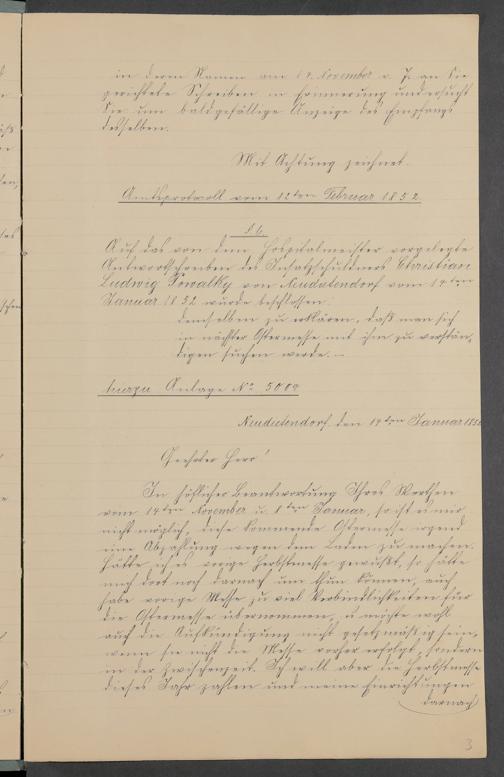 in deren Namen am 14. November v. J. an Sie
gerichtete Schreiben in Erinnerung und ersucht
Sie um baldgefällige Anzeige des Empfangs
desselben.
Mit Achtung zeichnet.
Amtsprotocoll vom 12ten Februar 1852
§ 6
Auf das von dem Hospitalmeister vorgelegte
Antwortschreiben des Insatzschuldners Christian
Ludwig Powalky von Neudietendorf vom 14ten
Januar 1852 wurde beschlossen:
demselben zu erklären, daß man sich
in nächster Ostermesse mit ihm zu verstän,
digen suchen werde. –
hierzu Anlage No 5008
Neudietendorf den 14ten Januar
Geehrter Herr!
In höflicher Beantwortung Ihres Werthen
vom 14ten November u. 1ten Januar, so ist es mir
nicht möglich, diese kommende Ostermesse irgend
eine Abzahlung wegen dem Laden zu machen.
Hätte ich es vorige Herbstmesse gewußt, so hätte
mich dort noch darnach um thun können, auch
habe vorige Messe zu viel Verbindlichkeiten für
die Ostermesse übernommen, u. möchte wohl
auch die Aufkündigung nicht gesetzmäßig sein,
wenn sie nicht die Messe vorher erfolgt, sondern
in der Zwischenzeit. Ich will aber die Herbstmesse
dieses Jahr zahlen und meine Einrichtungen
darnach
3